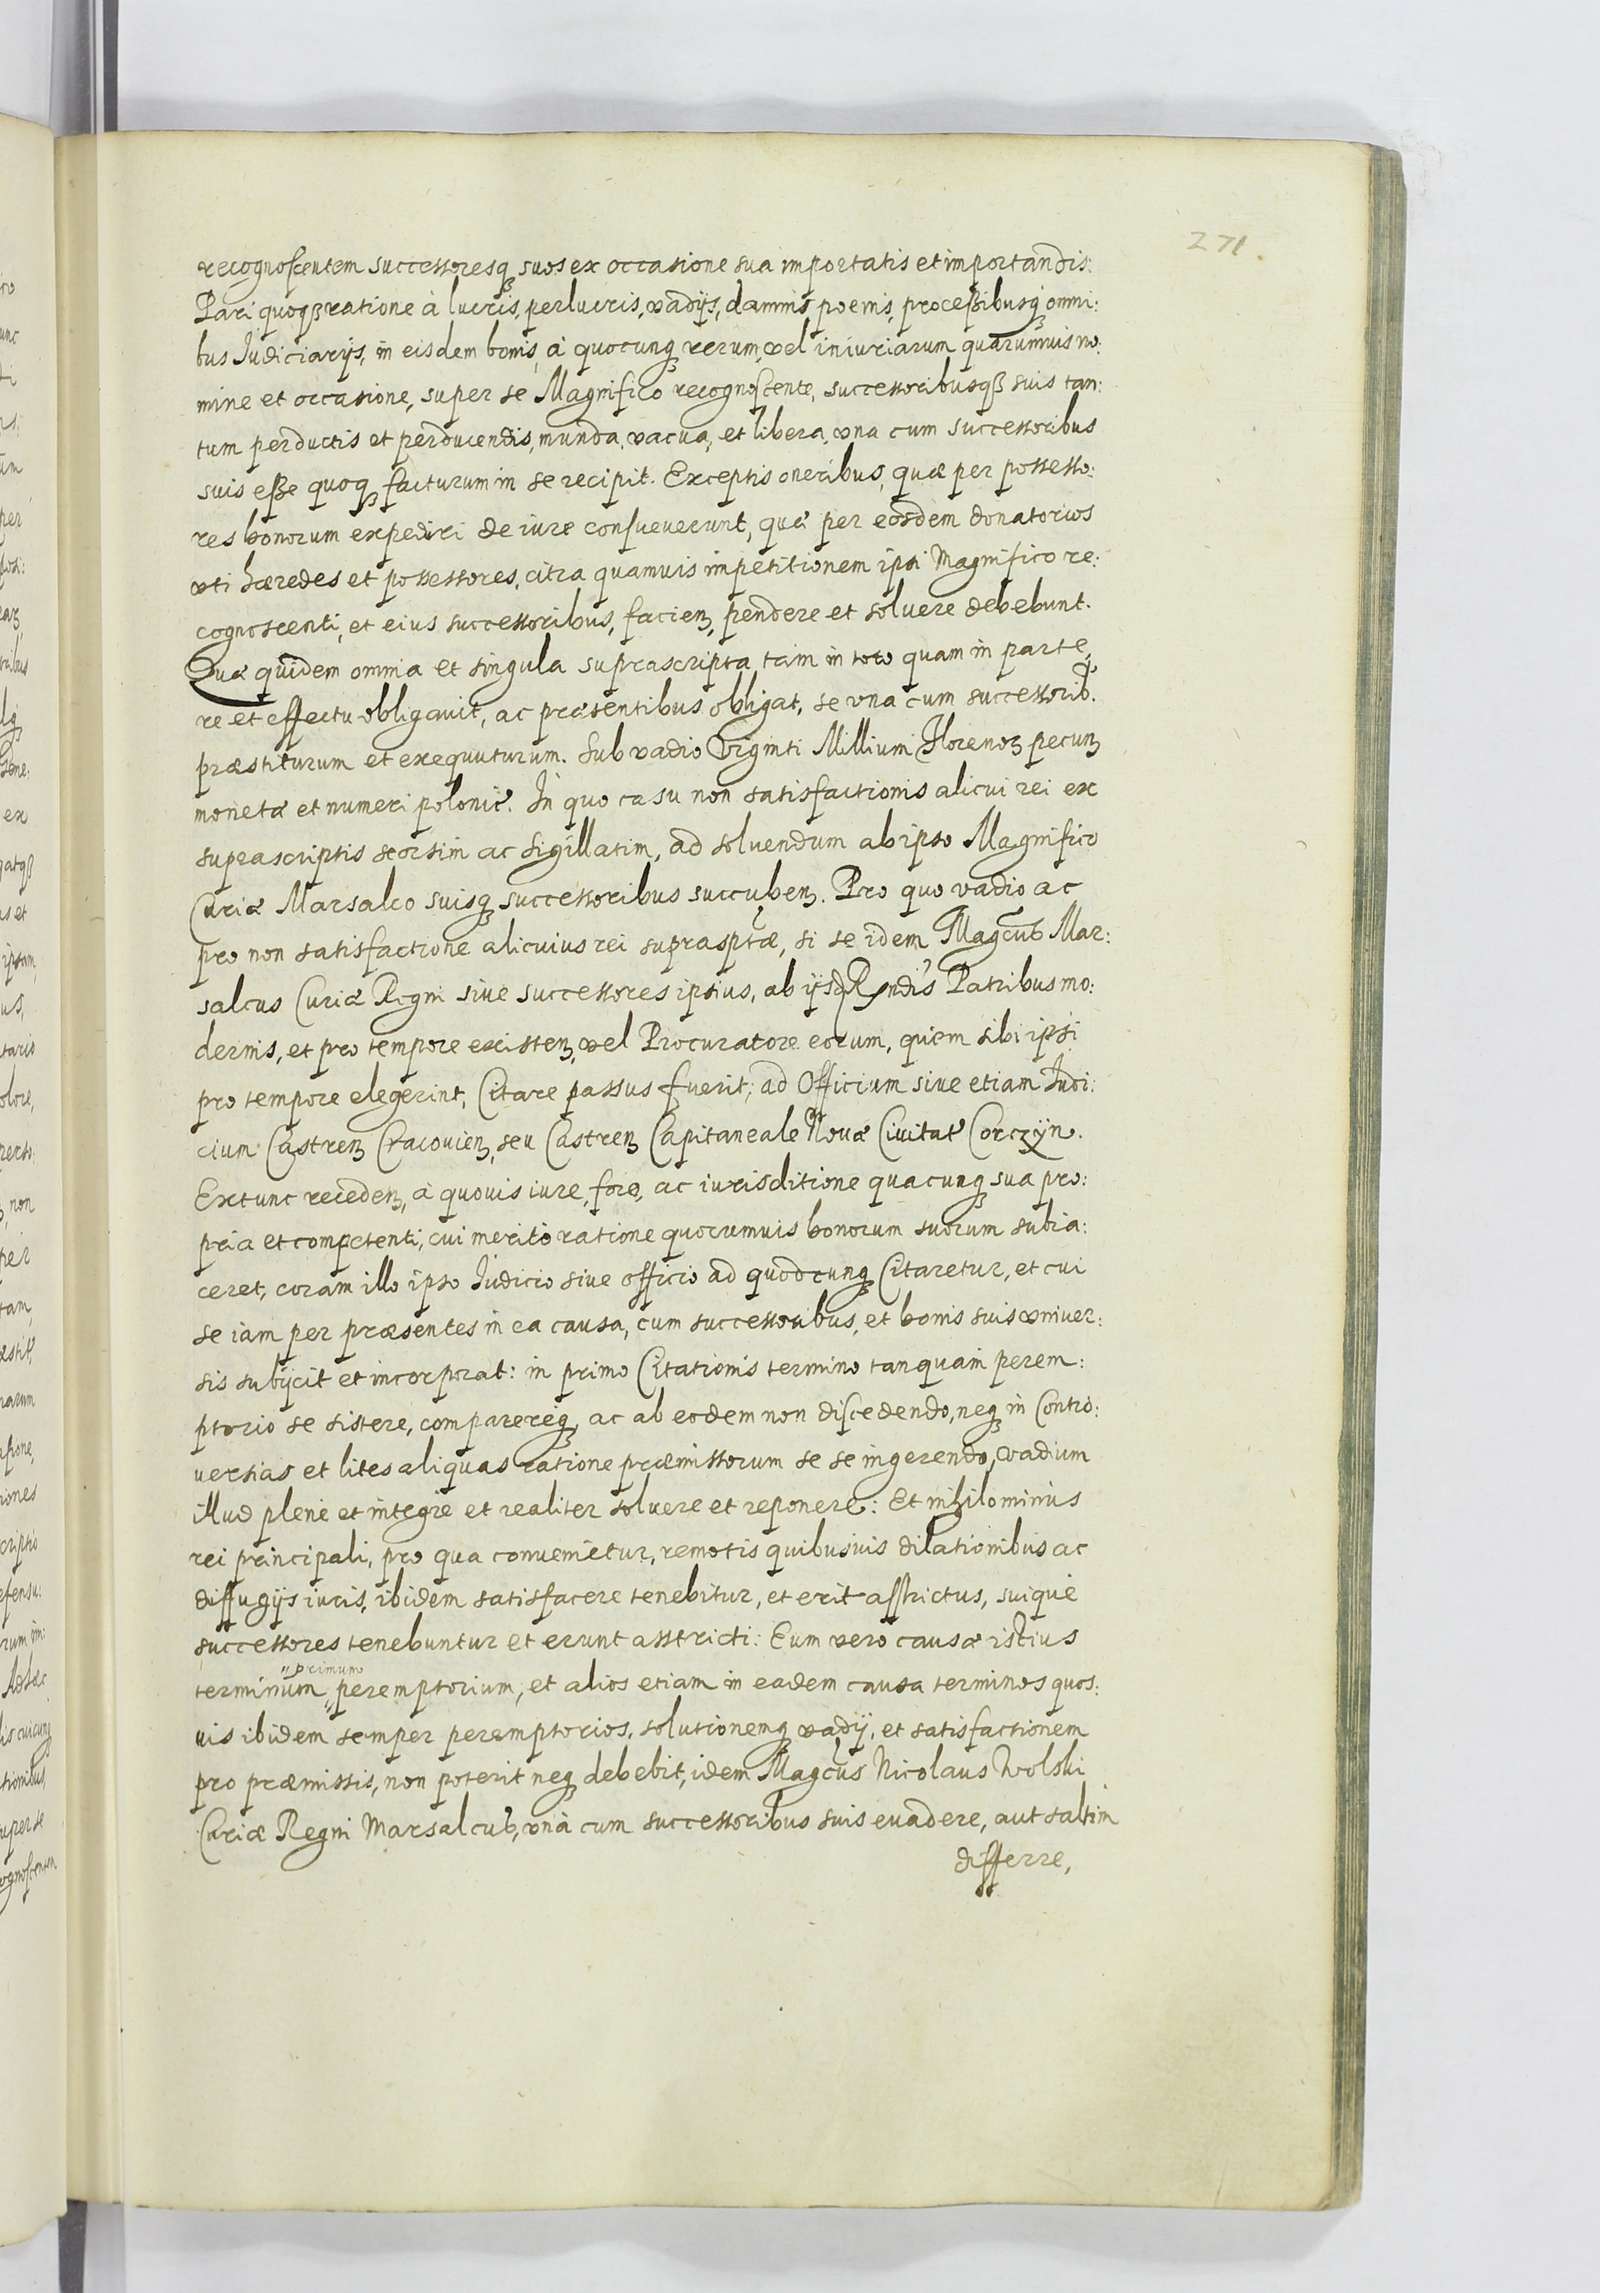 271.
recognoscentem successoresq3 suos ex occasione sua importatis et importandis:
Pari quoq3 ratione à lucris, perlucris, vadijs, damnis poenis, processibusq3 omni:
bus Judiciarijs, in eisdem bonis, à quocunq3 rerum, vel iniuriarum quarumuis no:
mine et occasione, super se Magnifico recognoscente, successoribusq3 suis tan:
tum perductis et perducendis, munda, vacua, et libera, vna cum successoribus
suis esse quoq3 facturum in se recipit. Exceptis oneribus, quæ per possesso:
res bonorum expediri de iure consueuerunt, quæ per eosdem donatorios
vti hæredes et possessores, citra quamuis impetitionem ipsi Magnifico re:
cognoscenti, et eius successoribus, facien3, pendere et soluere debebunt.
Quæ quidem omnia et singula suprascripta tam in toto quam in parte,
re et effectu obligauit, ac præsentibus obligat, se vna cum successorib9.
præstiturum et exequuturum. Sub vadio Viginti Millium Floreno3 pecun3
monetæ et numeri polonic. In quo casu non satisfactionis alicui rei ex
suprascriptis seorsim ac sigillatim, ad soluendum ab ipso Magnifico
Curiæ Marsalco suisq3 successoribus succuben3. Pro quo vadio ac
pro non satisfactione alicuius rei suprasptæ, si se idem Magcus Mar:
salcus Curiæ Regni siue successores ipsius, ab ijsd Rndis Patribus mo:
dernis, et pro tempore existen3, vel Procuratore eorum, quem sibi ipsi
pro tempore elegerint, Citare passus fuerit, ad Officium siue etiam Judi:
cium Castren3 Cracouien3, seu Castren3 Capitaneale Nouæ Ciuitat Corczyn.
Extunc receden3, à quouis iure, foro, ac iurisditione quacunq3 sua pro:
pria et competenti, cui merito ratione quorumuis bonorum suorum subia:
ceret, coram illo ipso Judicio siue officio ad quodcunq3 Citaretur, et cui
se iam per præsentes in ea causa, cum successoribus, et bonis suis vniuer:
sis subijcit et incorporat: in primo Citationis termino tanquam perem:
ptorio se sistere, comparereq3, ac ab eodem non discedendo, neq3 in Contro:
uersias et lites aliquas ratione præmissorum se se ingerendo, vadium
illud plene et integre et realiter soluere et reponere: Et nihilominus
rei principali, pro qua conuenietur, remotis quibusuis dilationibus ac
diffugijs iuris, ibidem satisfacere tenebitur, et erit astrictus, suique
successores tenebuntur et erunt asstricti: Eum vero causæ istius
"primum
terminum "peremptorium, et alios etiam in eadem causa terminos quos:
uis ibidem semper peremptorios, solutionemq3 vadij, et satisfactionem
pro præmissis, non poterit neq3 debebit, idem Magcus Nicolaus Wolski
Curiæ Regni Marsalcus, vnà cum successoribus suis euadere, aut saltim
differre,